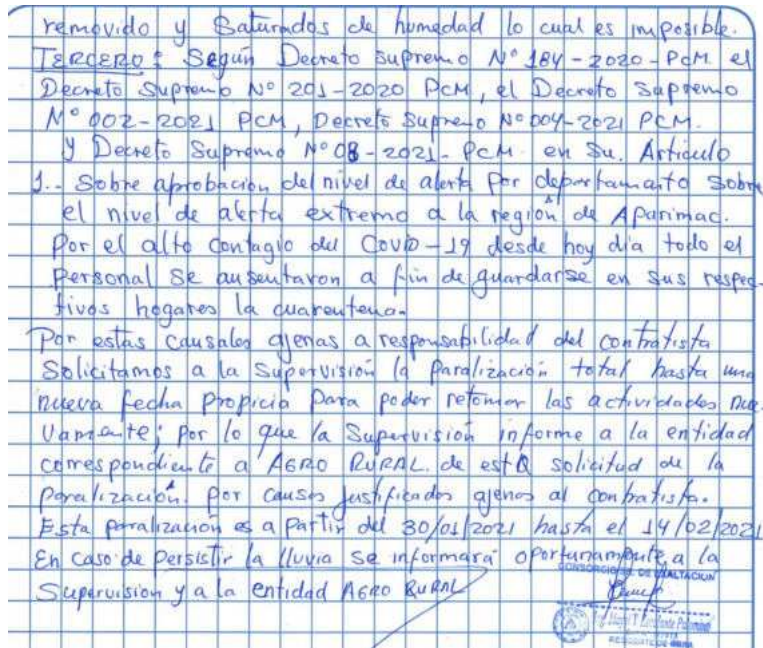 removido y Saturados de humedad lo cual es imposible.
TERCERO: Según Decreto supremo N° 184-2020-PCM. el
Decreto Supremo N° 201-2020 PCM, el Decreto Supremo
N° 002-2021 PCM, Decreto Supremo N° 004-2021 PCM.
y Decreto Supremo N° 08-2021-PCM. en Su. Artículo
1.- Sobre aprobación del nivel de alerta por departamento Sobre
el nivel de alerta extremo a la región de Apurimac.
Por el alto contagio del Covid-19 desde hoy día todo el
Personal Se ausentaron a fin de guardarse en sus respec-
tivos hogares la cuarentena.
Por estas causales ajenas a responsabilidad del contratista
Solicitamos a la Supervisión la Paralización total hasta una
nueva fecha propicia para poder retomar las actividades nue-
vamente; por lo que la Supervisión informe a la entidad
correspondiente a AGRO RURAL. de esta solicitud de la
paralización. por causas justificadas ajenas al contratista.
Esta paralización es a partir del 30/01/2021 hasta el 14/02/2021
En caso de persistir la lluvia se informará oportunamente a la
Supervision y a la entidad AGRO RURAL
CONSORCIO DE EXALTACION
RESIDENTE DE OBRA